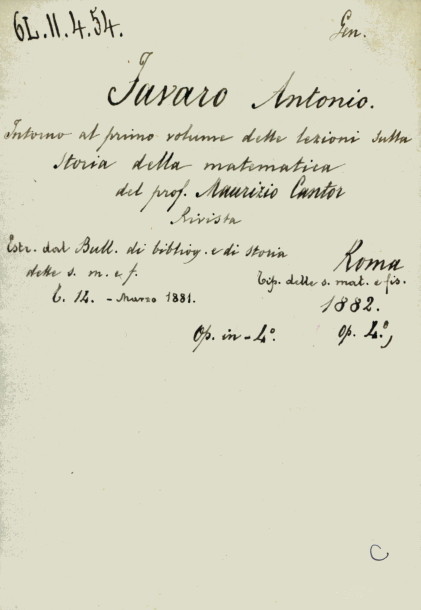 6L.11.4.54. Gen.
Favaro Antonio.
Intorno al primo volume delle lezioni sulla
Storia della matematica
del prof. Maurizio Cantor
Rivista
Estr. dal Bull. di bibliog. e di storia
delle s. m. e f. Roma
t. 14. - Marzo 1881. Tip. delle s. mat. e fis.
1882.
Op. in-4.° Op. 4.°,
C